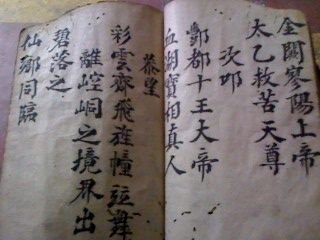 金闕寥陽上帝
太乙救苦天尊
次叩
酆都十王大帝
血湖寶相真人
恭望
彩雲齊飛旌幢並舞
離崆峒之境界出
碧落之
仙鄉同臨